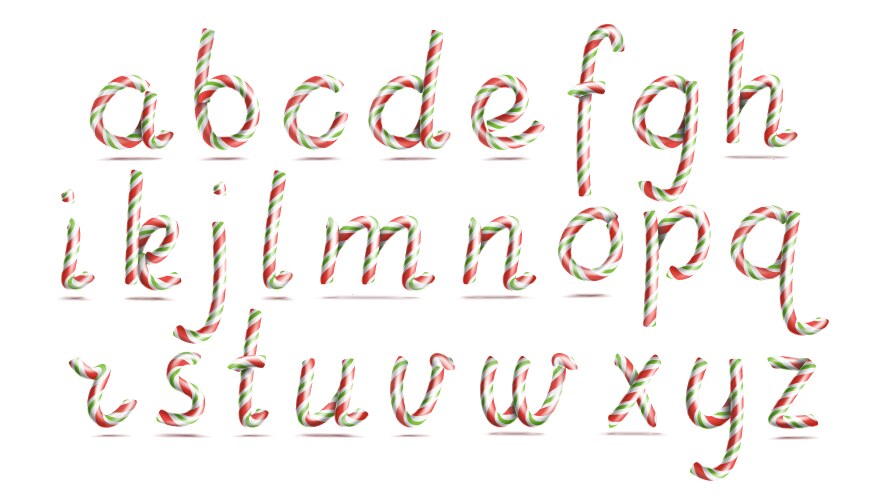 abcdefgh
ikjlmnopq
rstuvwxyz